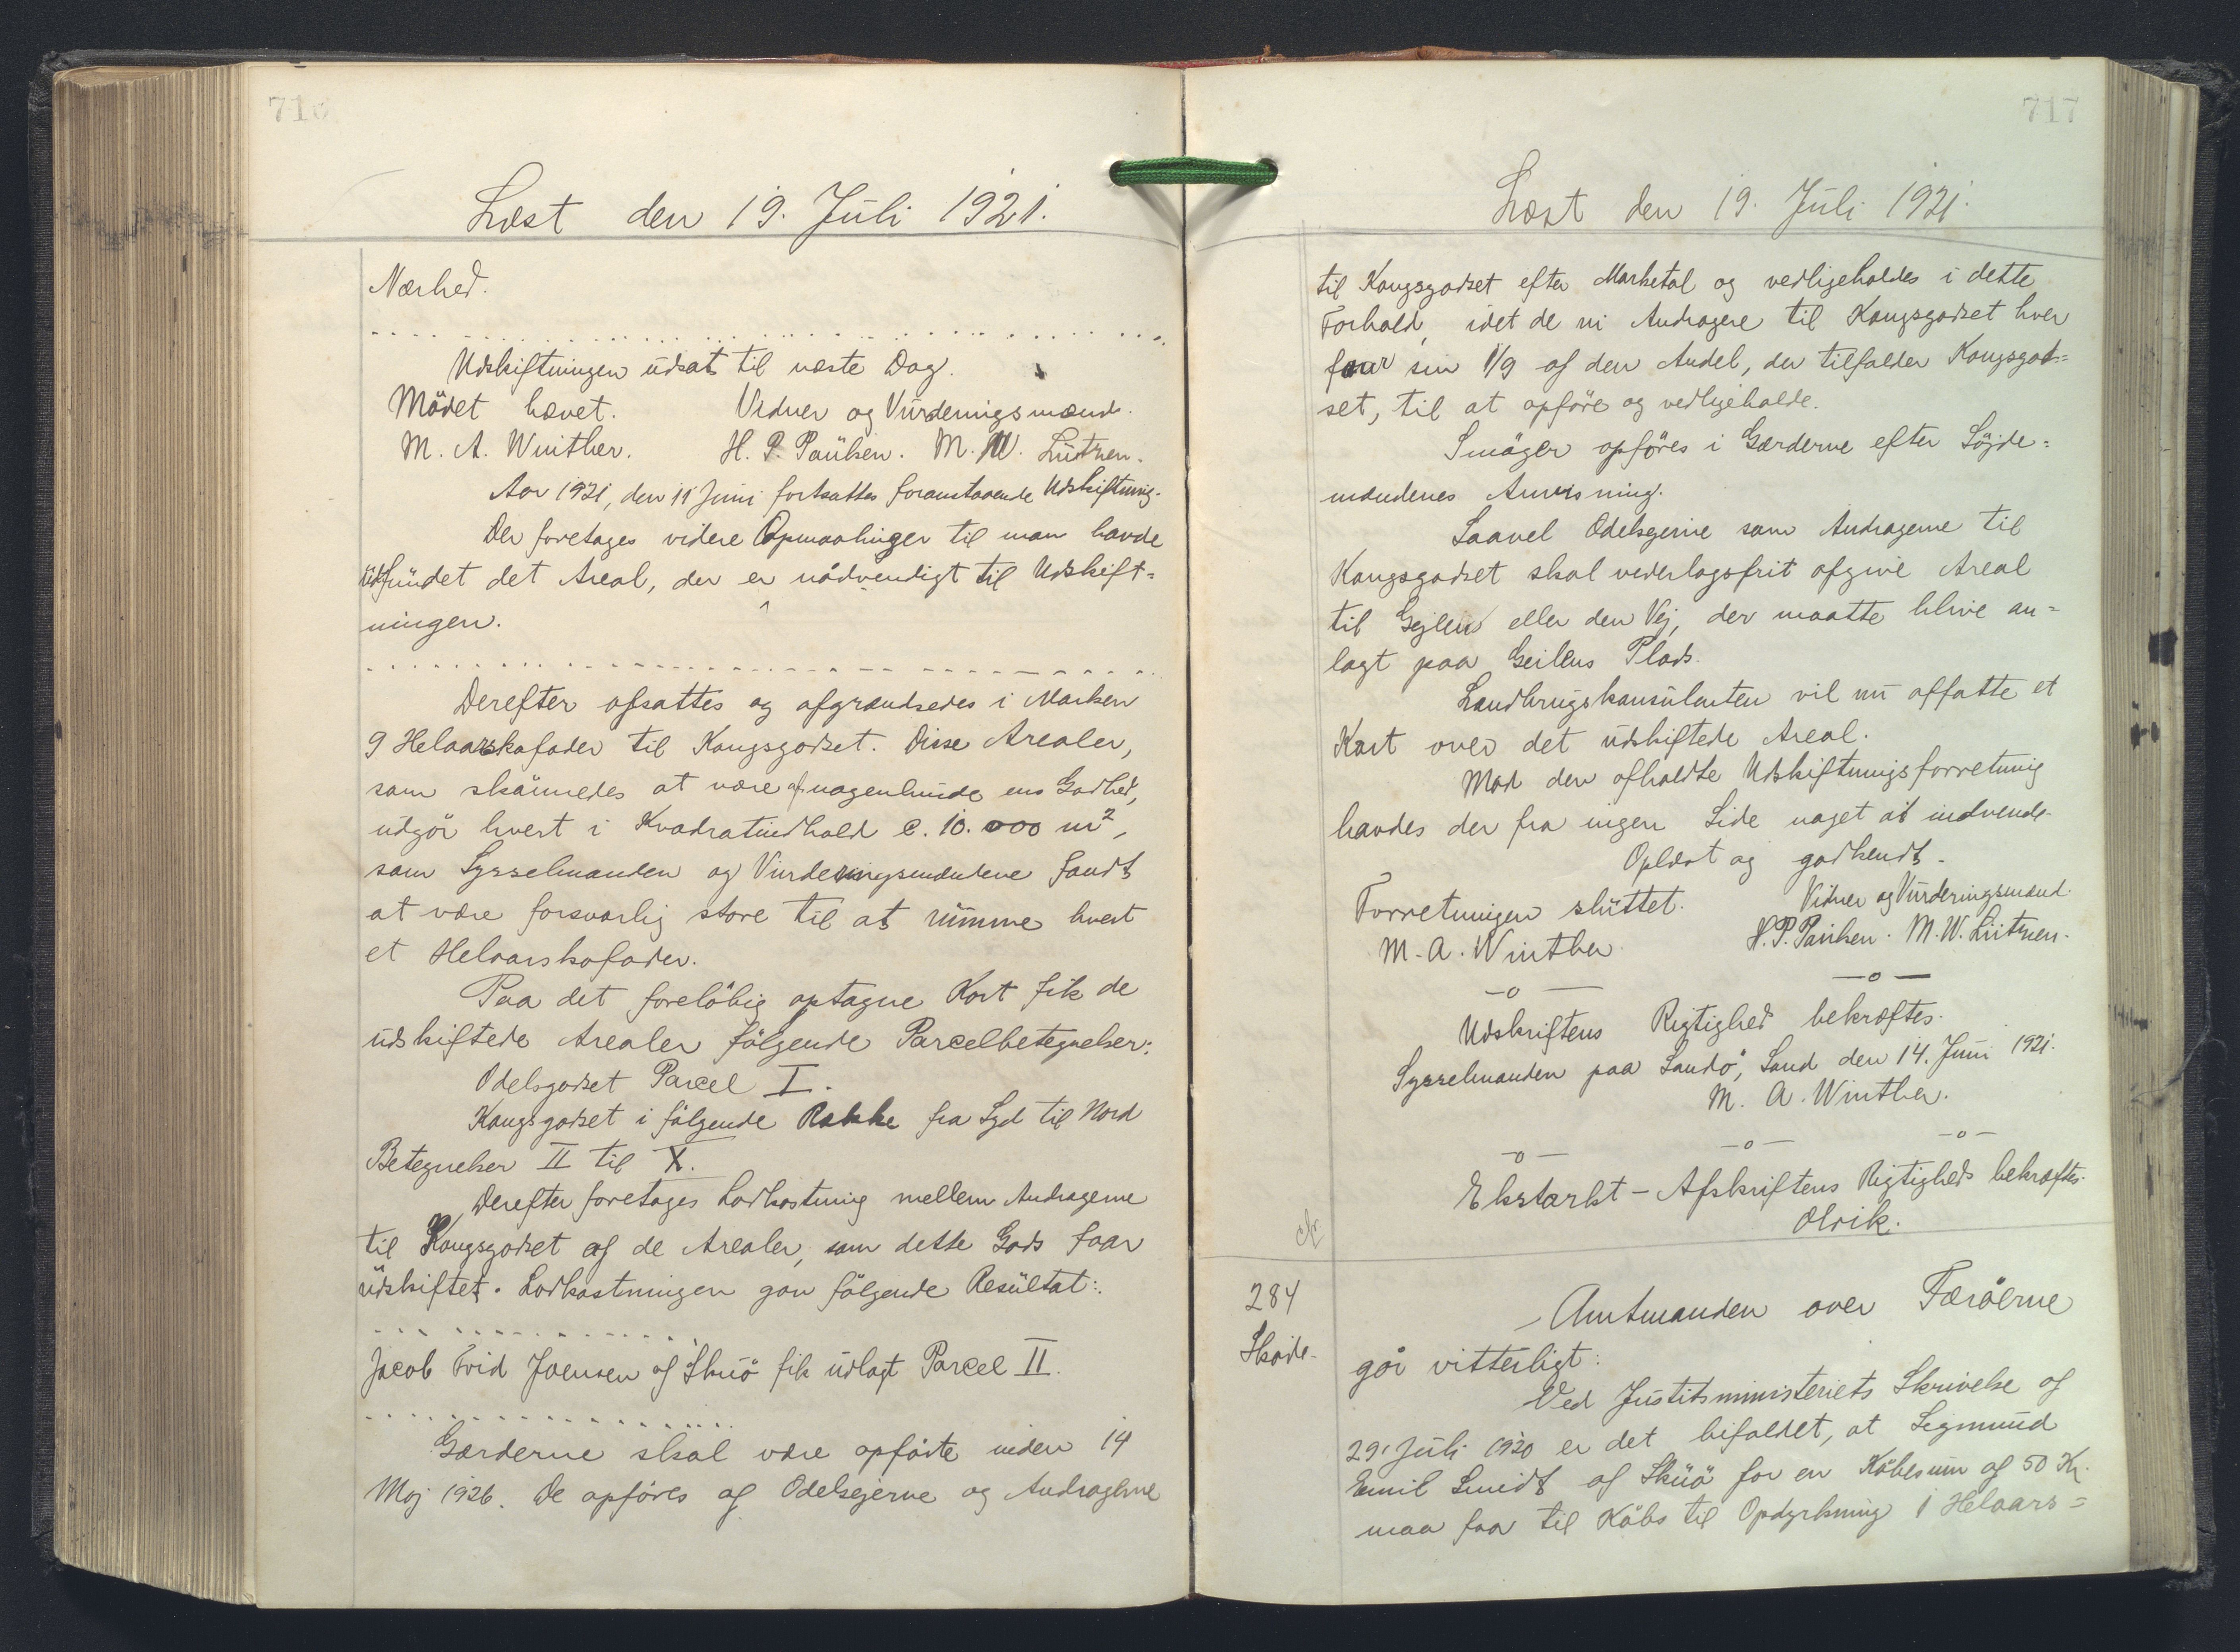 716
Læst den 19. Juli 1921.
Nærhed.
Udskiftningen udsat til næste Dag.
Mödet hævet. Vidner og Vurderingsmænd.
M. A. Winther. H. P. Paulsen. M. W. Lützen.
Aar 1921, den 11 Juni fortsattes foranstaaende Udskiftning.
Der foretages videre Opmaalinger til man havde
udfundet det Areal, der er nödvendigt til Udskift=
ningen.
Derefter afsattes og afgrændsedes i Marken
9 Helaarskofoder til Kongsgodset. Disse Arealer,
som skönnedes at være af nogenlunde ens Godhed,
udgör hvert i Kvadratindhold c. 10.000 m²,
som Sysselmanden og Vurderingsmændene fandt
at være forsvarlig store til at rümme hvert
et Helaarskofoder.
Paa det forelöbig optagne Kort fik de
udskiftede Arealer fölgende Parcelbetegnelser:
Odelsgodset Parcel I.
Kongsgodset i fölgende Række fra Syd til Nord
Betegnelser II til X.
Derefter foretages Lodkastning mellem Andragerne
til Kongsgodset af de Arealer, som dette Gods faar
udskiftet. Lodkastningen gav fölgende Resultat:
Jacob Hvid Joensen af Skuö fik udlagt Parcel II.
Gærderne skal være opförte inden 14
Maj 1926. De opföres af Odelsejerne og Andragerne
717
Læst den 19. Juli 1921.
til Kongsgodset efter Marketal og vedligeholdes i dette
Forhold, idet de ni Andragere til Kongsgodset hver
faar sin 1/9 af den Andel, der tilfalder Kongsgod=
set, til at opföre og vedligeholde.
Smöger opföres i Gærderne efter Löjde=
mændenes Anvisning.
Saavel Odelsejerne som Andragerne til
Kongsgodset skal vederlagsfrit afgive Areal
til Gejlen eller den Vej, der maatte blive an=
lagt paa Geilens Plads.
Landbrugskonsulenten vil nu affatte et
Kort over det udskiftede Areal.
Mod den afholdte Udskiftningsforretning
havdes der fra ingen Side noget at indvende.
Oplæst og godkendt.
Forretningen sluttet. Vidner og Vurderingsmænd.
M. A. Winther H. P. Paulsen. M. W. Lützen.
—o— —o—
Udskriftens Rigtighed bekræftes.
Sysselmanden paa Sandö, Sand den 14. Juni 1921.
M. A. Winther.
—o— —o— —o—
Ekstarkt-Afskriftens Rigtigheds bekræftes.
Olrik.
cfr.
284
Sköde.
Amtmanden over Færöerne
gör vitterligt:
Ved Justitsministeriets Skrivelse af
29. Juli 1920 er det bifaldet, at Sigmund
Emil Smidt af Skuö for en Köbesum af 50 Kr.
maa faa til Köbs til Opdyrkning 1 Helaars=